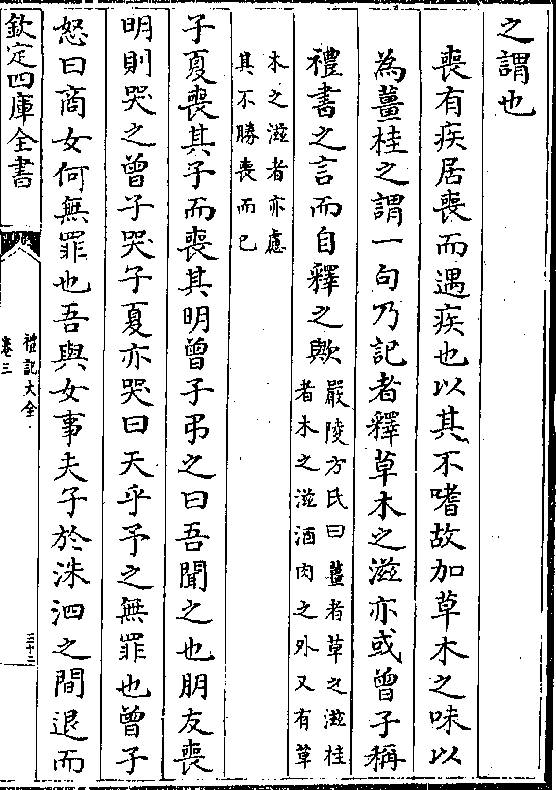 之謂也
喪有疾居喪而遇疾也以其不嗜故加草木之味以
為薑桂之謂一句乃記者釋草木之滋亦或曾子稱
禮書之言而自釋之歟嚴陵方氏曰薑者草之滋桂
者木之滋酒肉之外又有草
木之滋者亦慮
其不勝喪而已
子夏喪其子而喪其明曾子弔之曰吾聞之也朋友喪
明則哭之曾子哭子夏亦哭曰天乎予之無罪也曾子
怒曰商女何無罪也吾與女事夫子於洙泗之間退而
欽定四庫全書
禮記大全
卷三
三十三